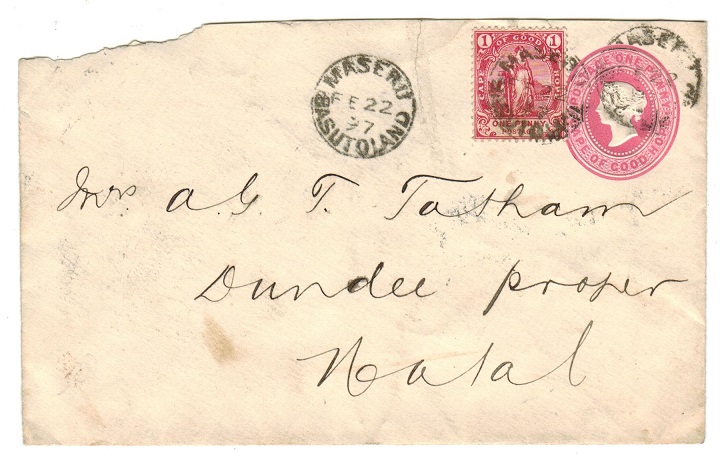 MASERU
FE 22
97
BASUTOLAND
1 1
CAPE OF GOOD HOPE
ONE PENNY
POSTAGE
MASERU
POSTAGE ONE PENNY
CAPE OF GOOD HOPE
Mrs A.G. T. Tatham
Dundee proper
Natal